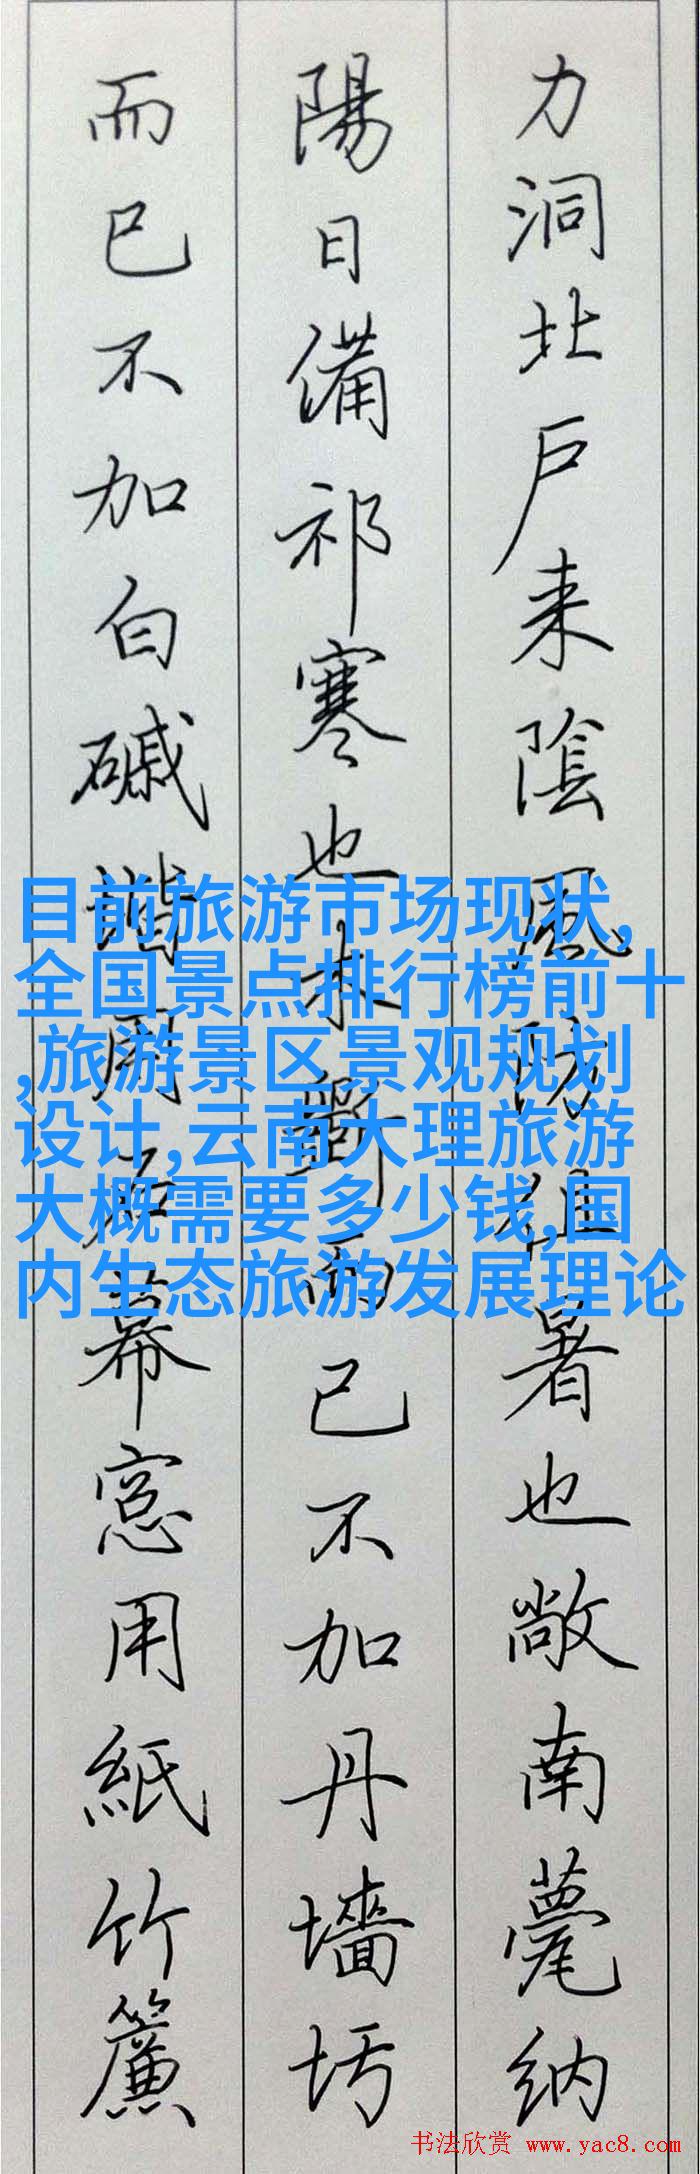 力洞北户来陰風防徂暑也敞南甍纳
陽日備祁寒也木斲而已不加丹墻圬
而已不加白磩階用石幕窓用紙竹簾
目前旅游市场现状,
全国景点排行榜前十
,旅游景区景观规划
设计,云南大理旅游
大概需要多少钱,国
内生态旅游发展理论
书法欣赏 www.yac8.com